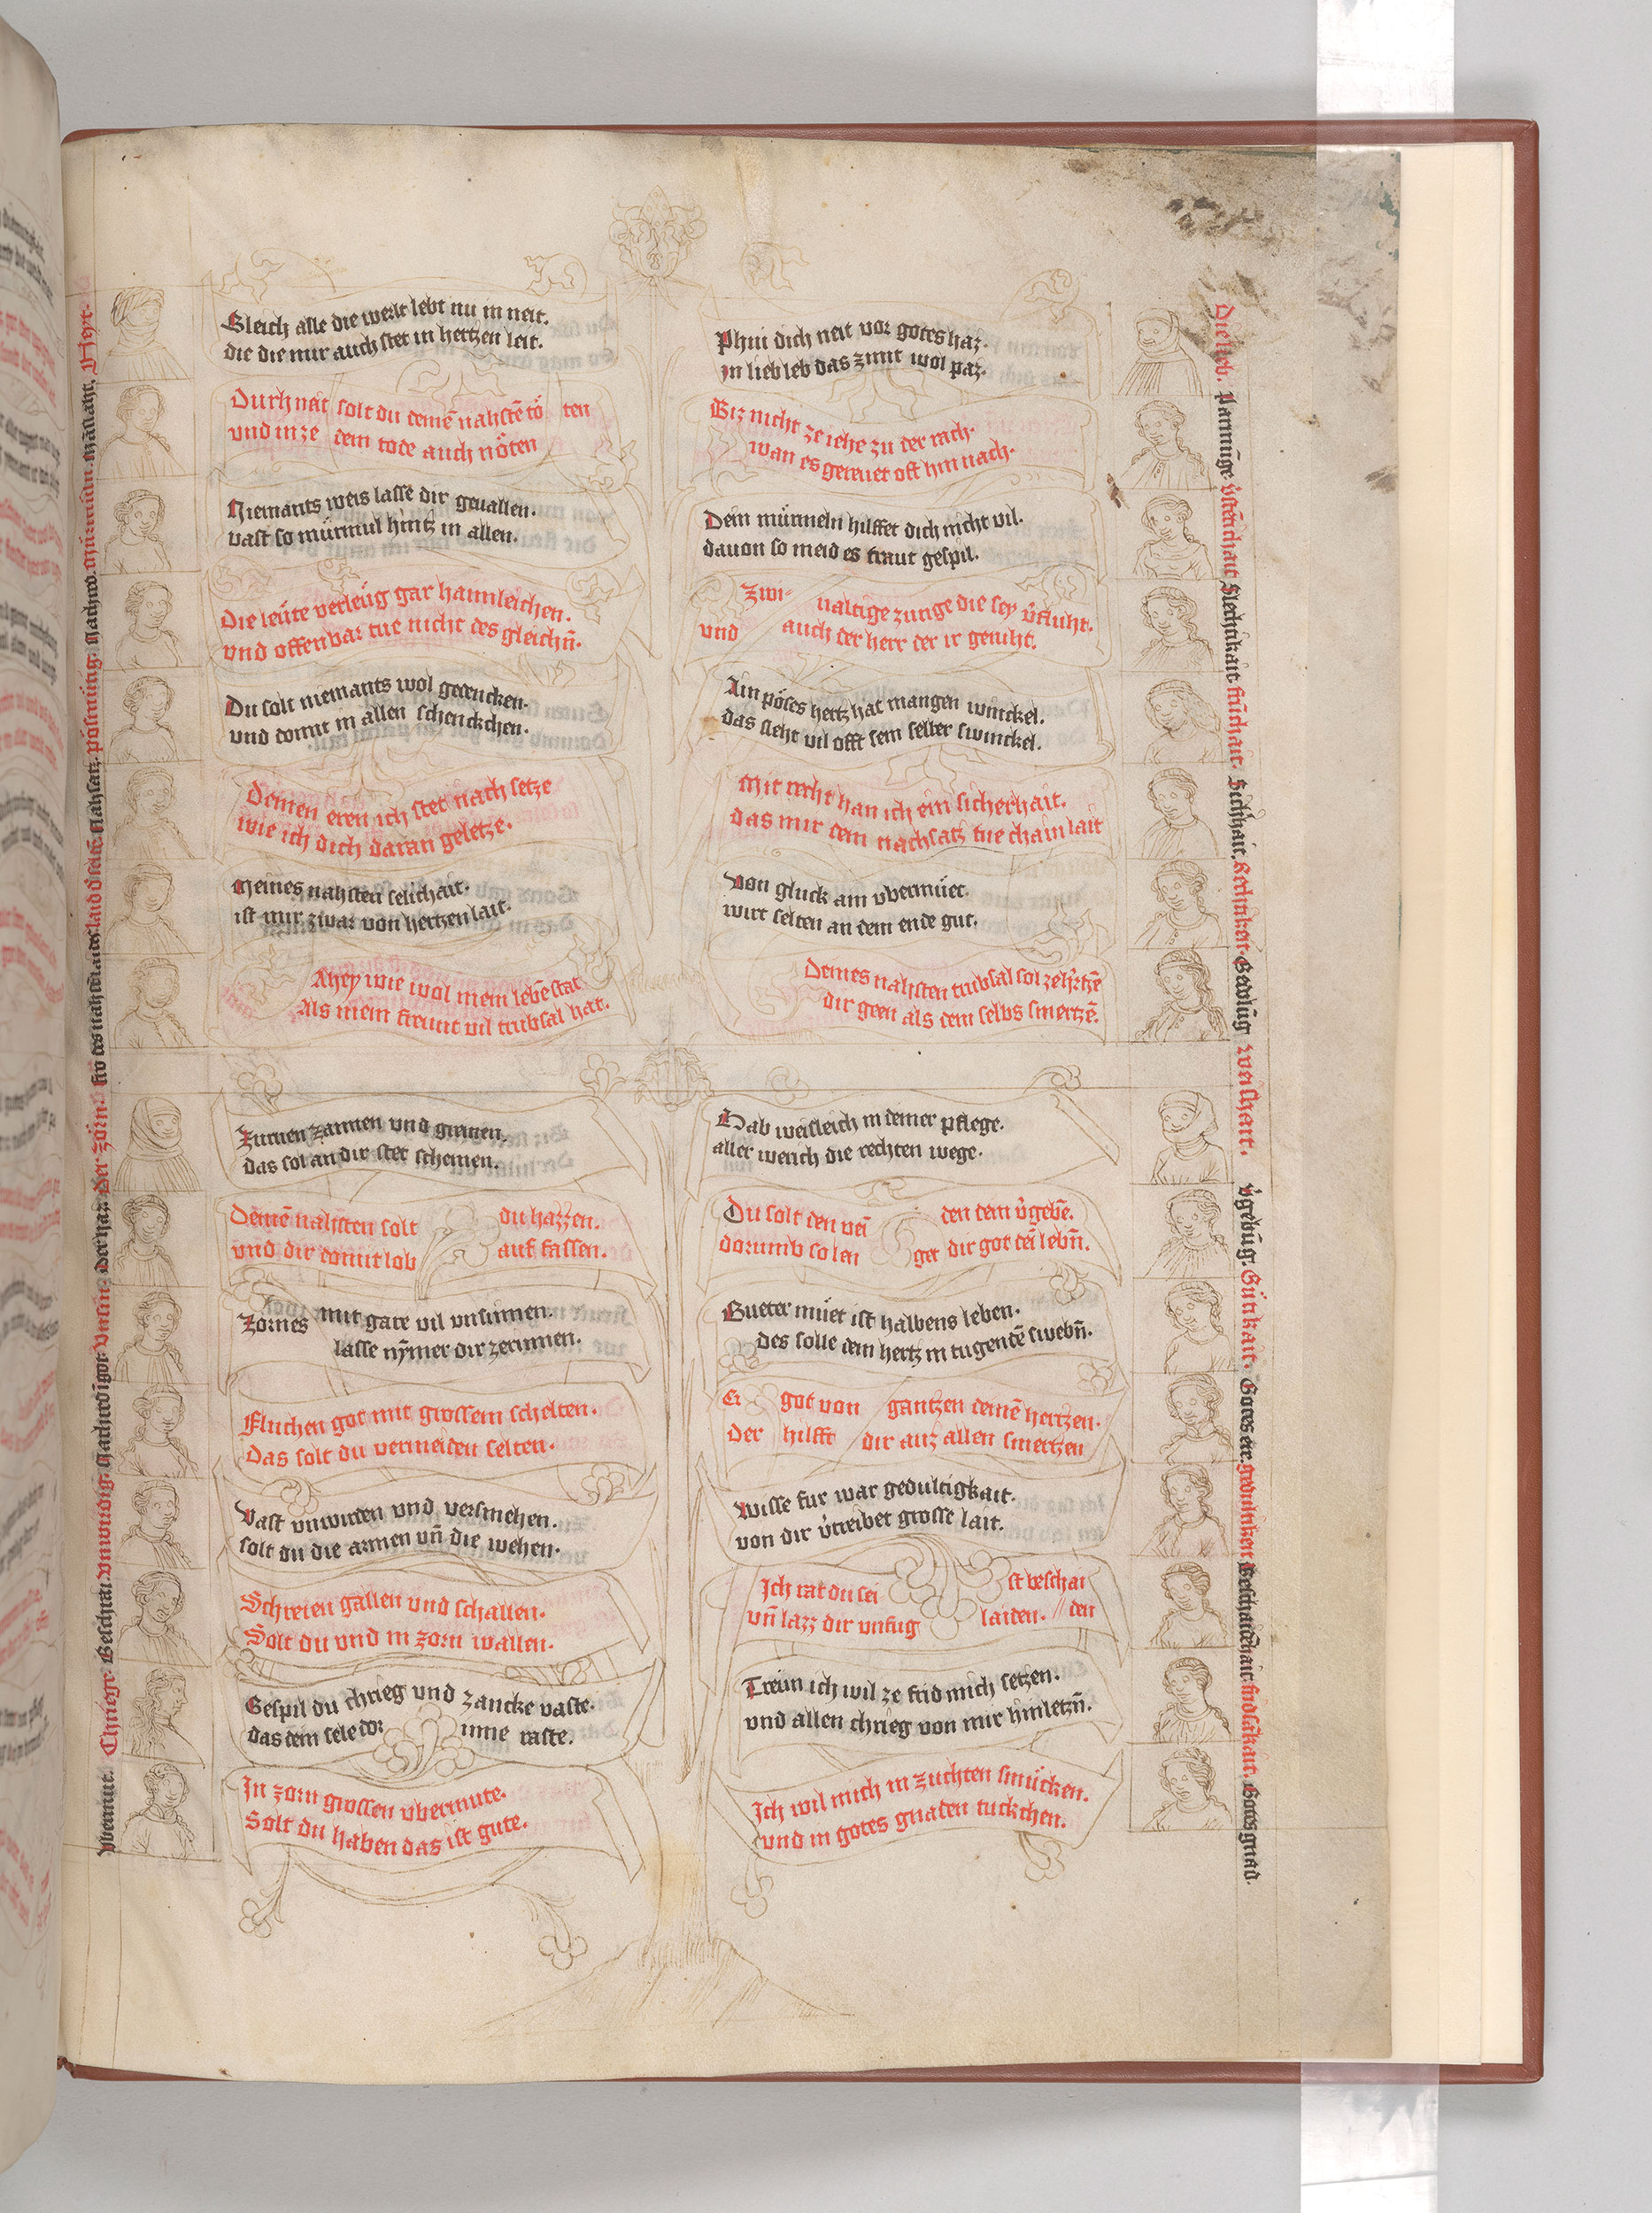 Gleich alle die werlt lebt nu in neit.
die die mir auch stet in hertzen leit.
Durh nait solt du deinē nahstē tö ten
vnd in ze dem tode auch nöten
Niemants weis lasse dir geuallen.
vast so murmul hintz in allen.
Die leüte verleüg gar haimleichen.
vnd offenbar tue nicht des gleichn̄.
Du solt niemants wol gedencken.
vnd domit in allen schenckchen.
Deinen eren ich stet nach setze
wie ich dich daran geletze.
Meines nahsten selichait.
ist mir zwar von hertzen lait.
Ahey wie wol mein lebē stat
Als mein freunt vil trubsal hat.
Phui dich neit vor gotes haz.
in lieb leb das zimt wol paz.
Biz nicht ze iehe zu der rach.
wan es gereuet oft hin nach.
Dein murmeln hilffet dich nicht vil.
dauon so meid es traut gespil.
Zwi- ualtige zunge die sey v̓fluht.
vnd auch der herr der ir genuht.
Ain pöses hertz hat mangen winckel.
das sleht vil offt sein selber swinckel.
Mit recht han ich ein sicherhait.
das mir dein nachsatz tue chain lait
Von gluck ain vbermüet.
wirt selten an dem ende gut.
Deines nahsten trubsal sol ze h̓rtzē
dir geen als dein selbs smertzē.
Zurnen zannen vnd greinen.
das sol an dir stet scheinen.
Deinē nahsten solt du hazzen.
vnd dir domit lob auf fassen.
Zornes mit gate vil vnsinnen.
lasse nȳmer dir zerinnen.
Fluchen got mit grossem schelten.
Das solt du vermeiden selten.
Vast vnwirden vnd versmehen.
solt du die armen vn̄ die wehen.
Schreien gallen vnd schallen.
Solt du vnd in zorn wallen.
Gespil du chrieg vnd zancke vaste.
das dein sele dor inne raste.
In zorn grossen vbermute.
Solt du haben das ist gute.
Hab weisleich in deiner pflege.
aller werich die rechten wege.
Du solt den vein den dein v̓gebē.
dorumb so len get dir got dei lebn̄.
Gueter müet ist halbens leben.
des solle dein hertz in tugendē swebn̄.
Er got von gantzen deinē hertzen.
der hilfft dir auz allen smertzen
Wisse fur war gedultigkait.
von dir v̓treibet grosse lait.
Ich rat du sei st beschai
vn̄ lazz dir vnfug laiden. // den
Treün ich wil ze frid mich setzen.
vnd allen chrieg von mir hinletzn̄.
Ich wil mich in zuchten smücken.
vnd in gotes gnaden tuckchen.
Der zörn.
Der haz.
Vnsin.
Vnwirdig.
Geschrai.
Chriege.
Vbermut.
Die lieb.
Sich̓hait.
Gedult.
Weishait.
V̓gebūg.
Gütikait.
Gotes er.
Gotes gnad.